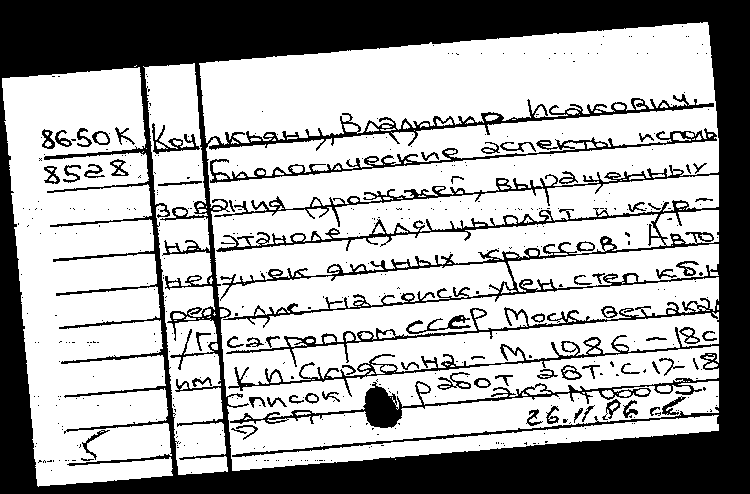 86-50К Кочикьянц, Владимир Исакович.
8528 Биологические аспекты исполь
зования дрожжей, выращенных
на этаноле, для цыплят и кур-
несушек яичных кроссов: Авто
реф. дис. на соиск. учен. степ. к.б.н
/Госагропром СССР, Моск. вет. акад
им. К.И. Скрябина. - М., 1986. - 18с
Список работ авт.: с. 17-18
экз N 00005
26.11.86